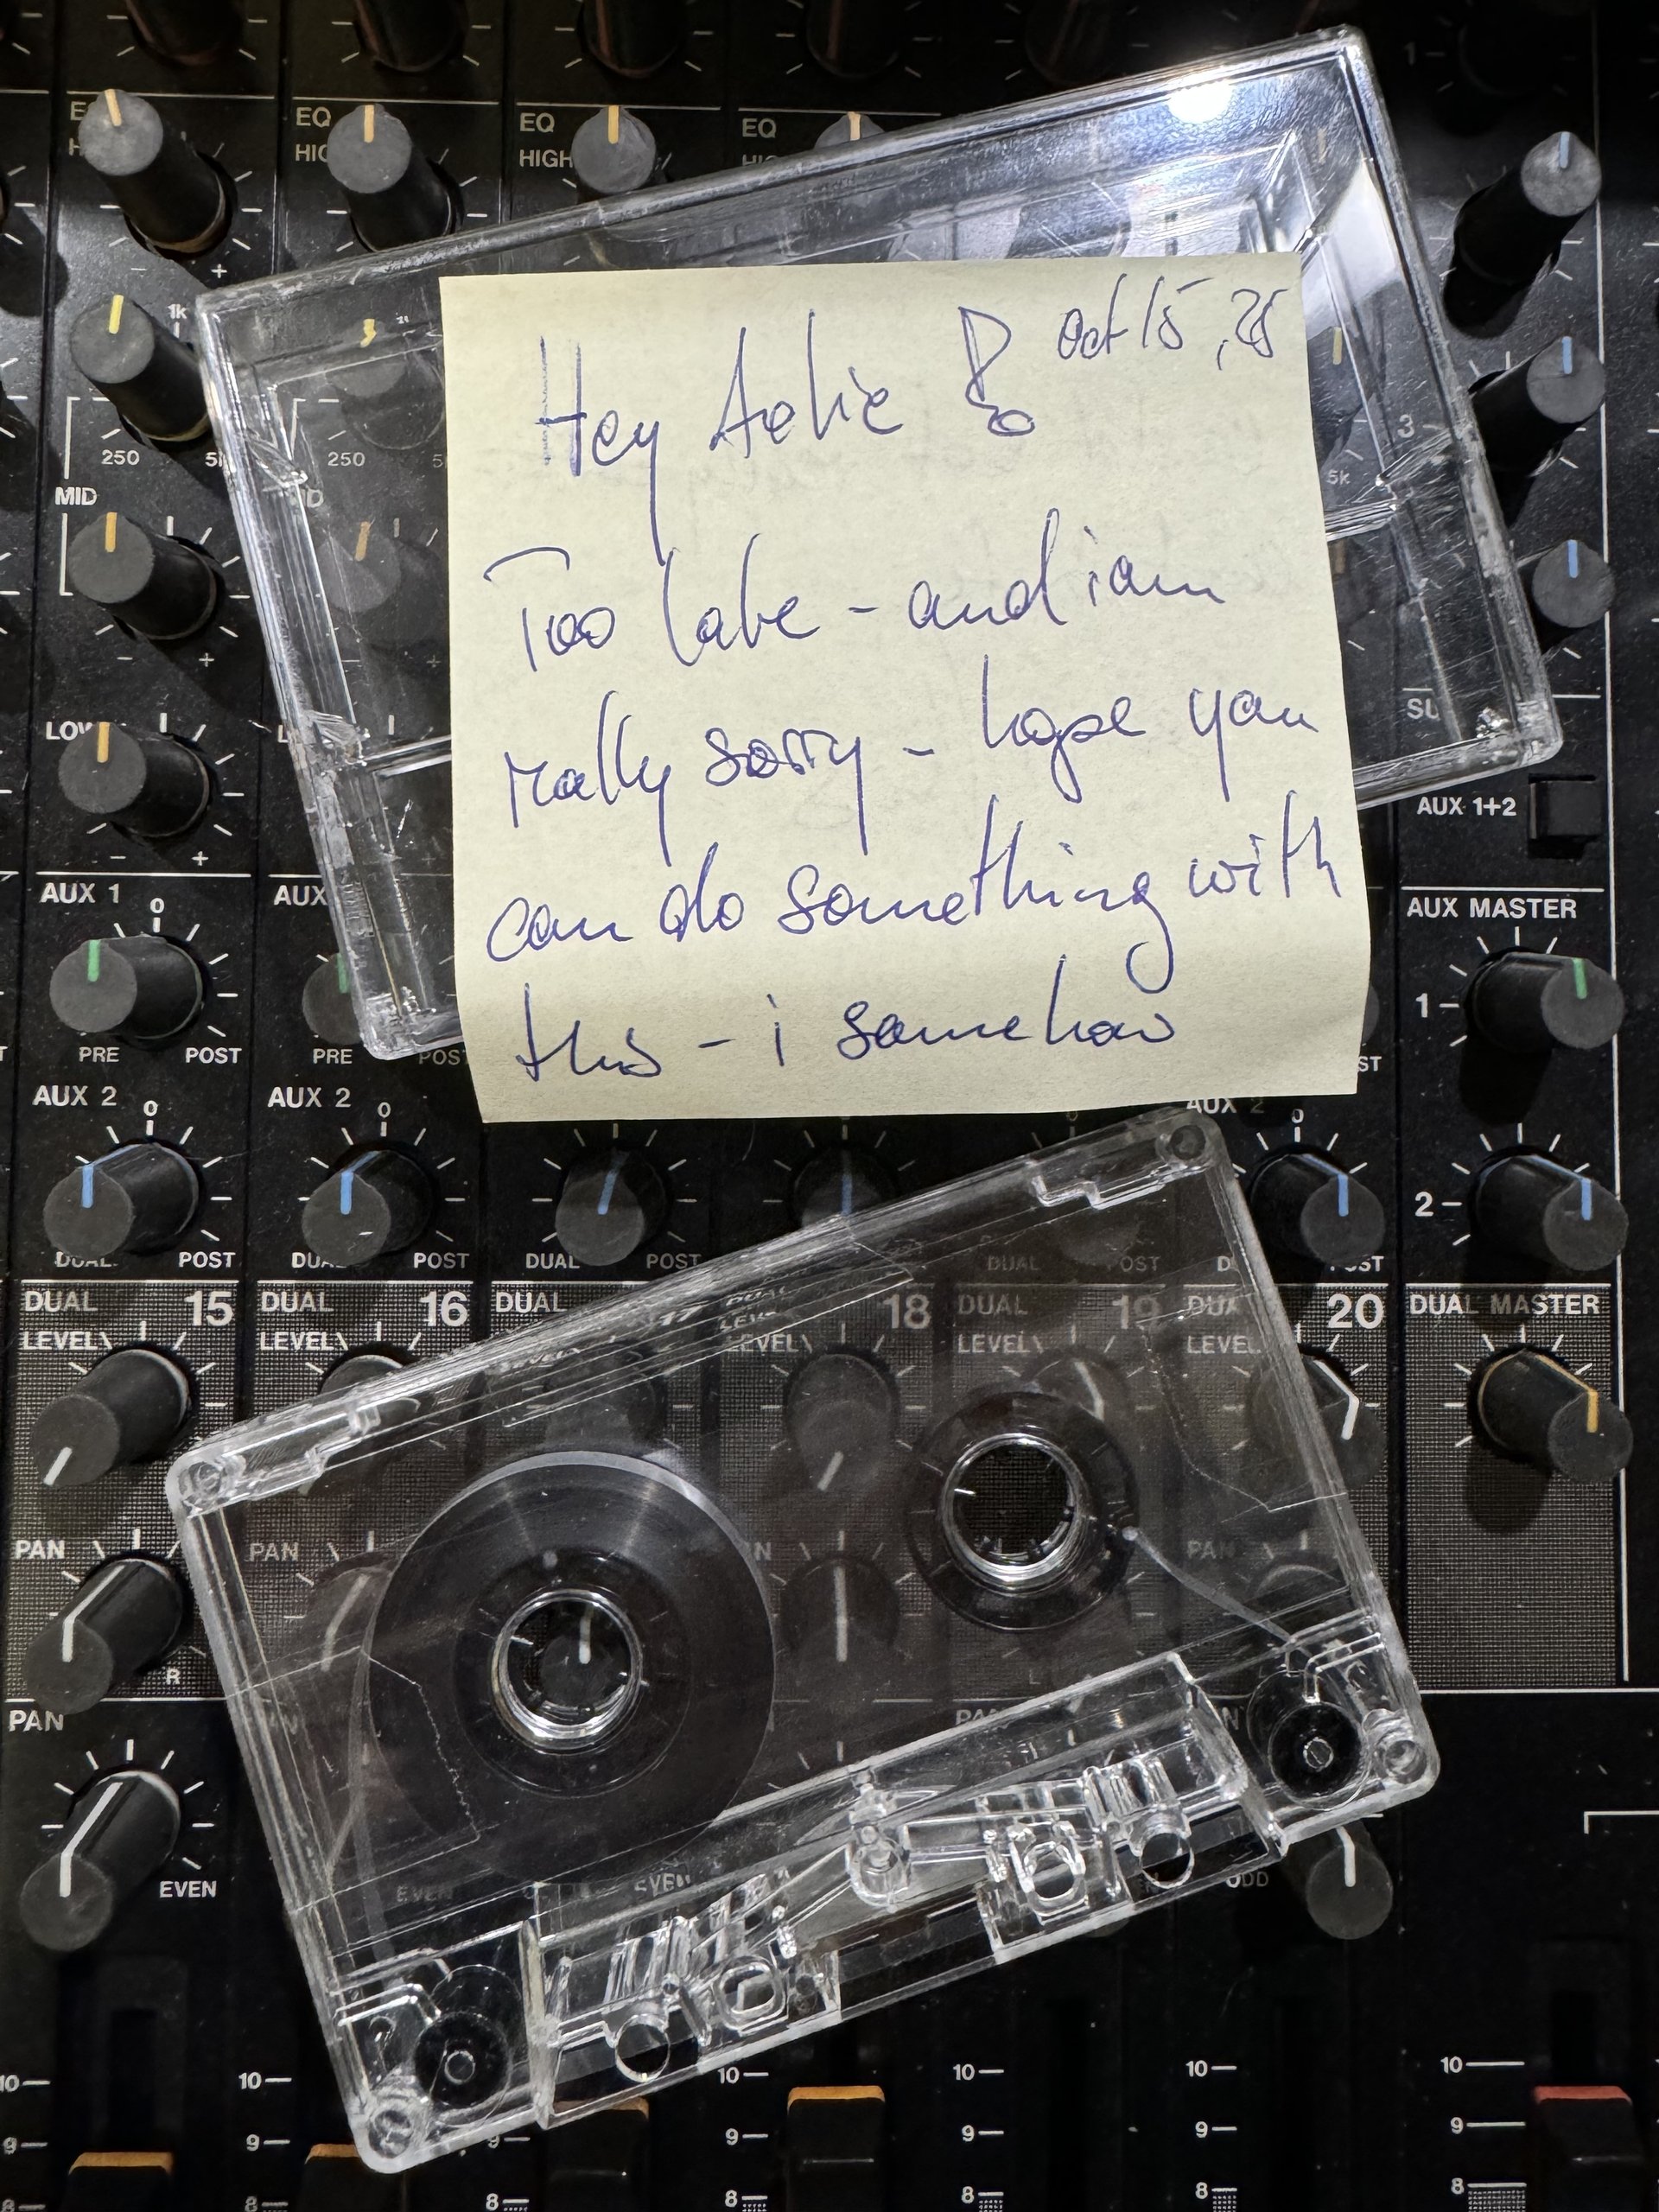 Oct 15, 25
Hey
Too late - and i am
really sorry - hope you
can do something with
this - i somehow
EQ EQ EQ EQ
HIGH
1k
250 5k 250
MID
LOW
3
5k
AUX 1+2
AUX 1 AUX AUX MASTER
0
1
PRE POST PRE POST
AUX 2 AUX 2 AUX 2
0 0 0
2
DUAL POST DUAL POST DUAL POST DUAL POST
DUAL 15 DUAL 16 DUAL 17 DUAL 18 DUAL 19 DUAL 20 DUAL MASTER
LEVEL LEVEL LEVEL LEVEL LEVEL LEVEL
PAN PAN PAN
R
PAN PAN
EVEN EVEN EVEN ODD
10 10 10 10 10 10
9 9 9 9 9 9
8 8 8 8 8 8